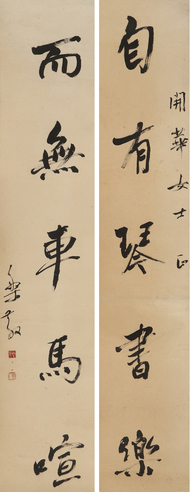 開華女士正
自有琴書樂
而無車馬喧